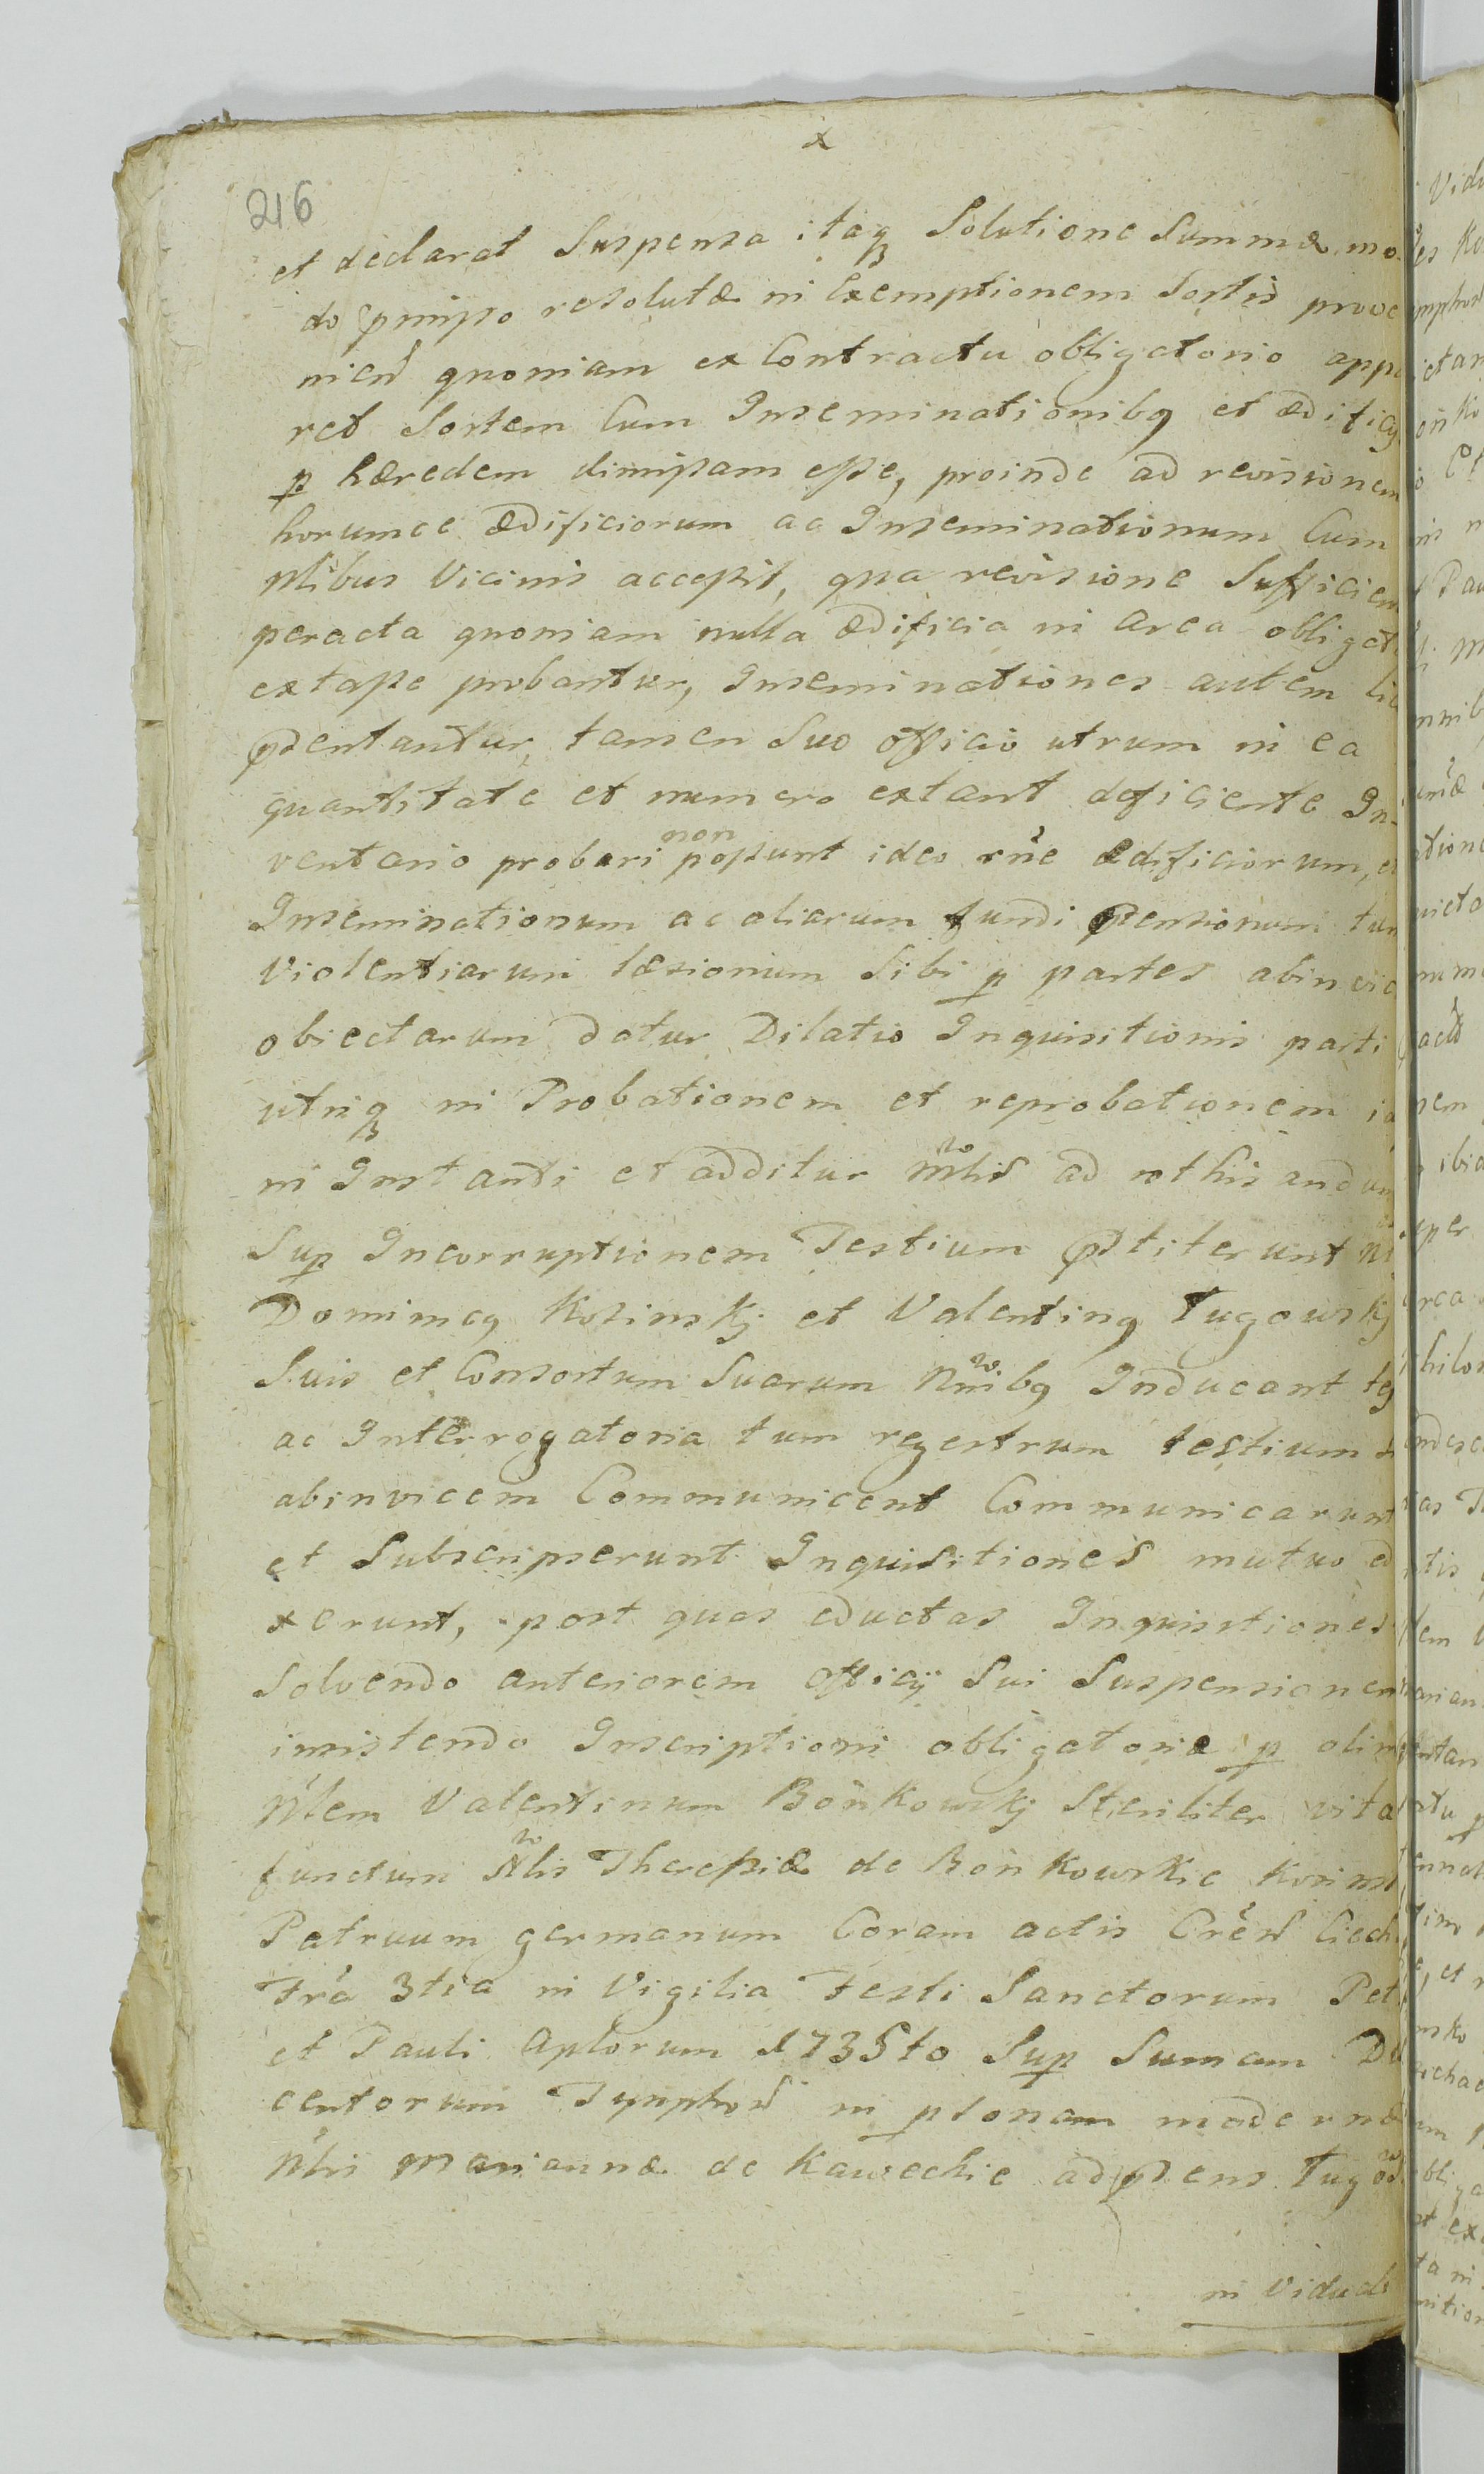 x
216
et declarat Suspensa itaq Solutione Summæ mo
do pmisso resolutæ in Exemptionem Sortis prove
nien quoniam ex Contractu obligatorio appa
ret Sortem Cum Inseminationibq et ædificijs
p hæredem dimissam esse, proinde ad revisionem
horumce ædificiorum ac Inseminationum Cum
Nlibus Vicinis accessit, qua revisione Sufficien
peracta quoniam nulla ædificia in area obligat
extasse probantur, Inseminationes autem lic
pdentantur, tamen Suo officio utrum in ea
quantitate et numero extant deficiente In-
ventario probari non possunt ideo rne ædificiorum, et
Inseminationum ac aliarum fundi ptensionum tum
Violentiarum læsionum Sibi p partes abinvic
obiectarum datur Dilatio Inquisitionis parti
utriq in Probationem et reprobationem ia
in Instanti et additur ad rothisandum
Sup Incorruptionem Testium pstiterunt
Dominicq Kosinskj et Valentinq Tugowskj
Suis et Consortum Suarum Nnibq Inducant tes
ac Interrogatoria tum regestrum testium s
abinvicem Communicent Communicarunt
et Subscripserunt Inquisitiones mutuo ed
xerunt, post quas eductas Inquisitiones
Solvendo anteriorem officij Sui Suspensionem
insistendo Inscriptioni obligatoriæ p olim
Nlem Valentinum Bońkowskj Steriliter vita
functum Nlis Theressiæ de Bońkowskie Kosinsk
Patruum germanum Coram actis Cren Ciech
Fra 3tia in Vigilia Festi Sanctorum Pet
et Pauli Aplorum 1735to Sup Sumam Du
centorum Tynphon in psonam modernæ
Nlis Mariannæ de Kaweckie adpsens Tugow
in Viduali